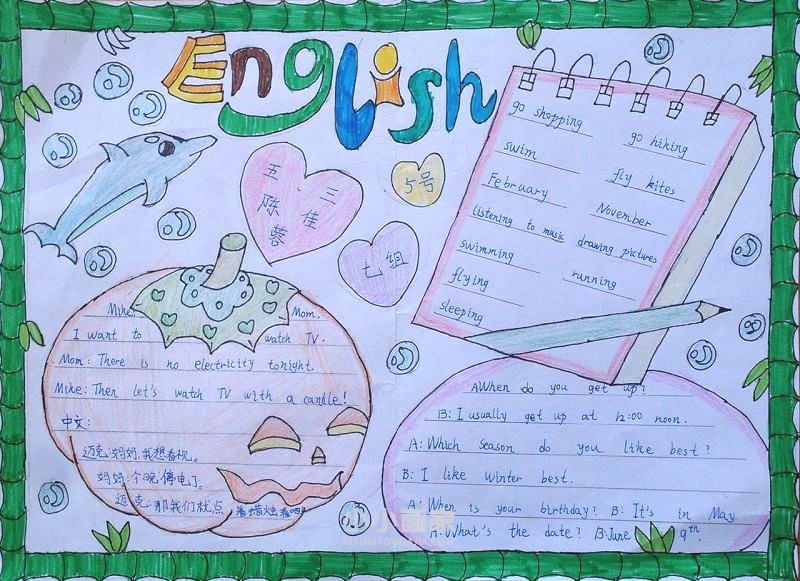 English
五 三
陈 佳
蓉
5号
七组
go shopping
go hiking
swim
fly kites
February
November
listening to music
drawing pictures
swimming
running
flying
sleeping
Mike: Mom.
I want to watch TV.
Mom: There is no electricity tonight.
Mike: Then let's watch TV with a candle!
中文:
迈克:妈妈,我想看视。
妈妈:今晚停电了。
迈克:那我们就点着蜡烛看吧!
A:When do you get up?
B: I usually get up at 12:00 noon.
A: Which season do you like best?
B: I like winter best.
A: When is your birthday? B: It's in May.
A: What's the date? B: June 9th.